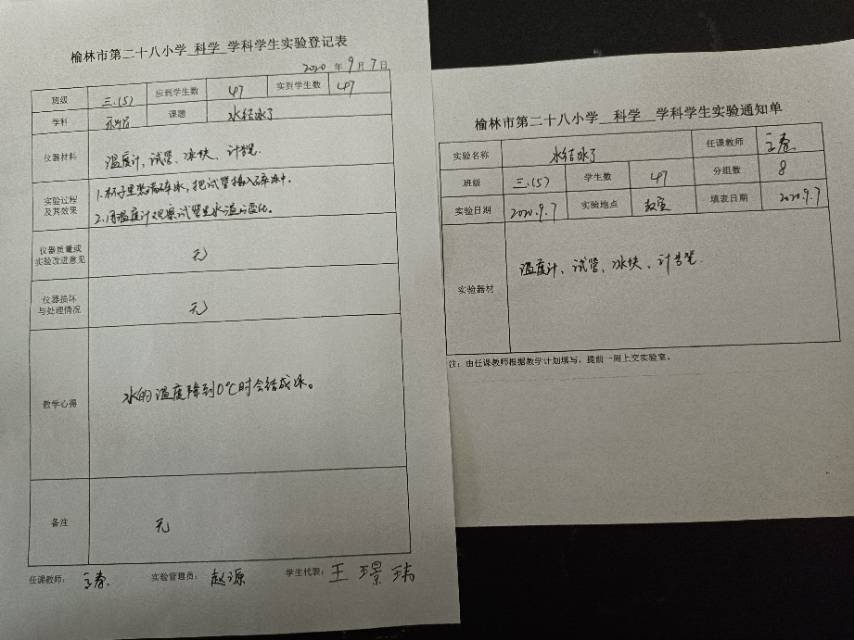 榆林市第二十八小学 科学 学科学生实验登记表
2020 年 9 月 7 日
班级 三.(5) 应到学生数 47 实到学生数 47
学科 科学 课题 水结冰了
仪器材料 温度计、试管、冰块、计时器.
实验过程及其效果 1.杯子里装满碎冰,把试管插入碎冰中.
2.用温度计观察试管里水温的变化。
仪器质量或实验改进意见 无
仪器损坏与处理情况 无
教学心得 水的温度降到0℃时会结成冰。
备注 无
任课教师: 春 实验管理员: 赵源 学生代表: 王璟玮
榆林市第二十八小学 科学 学科学生实验通知单
实验名称 水结冰了 任课教师 春
班级 三.(5) 学生数 47 分组数 8
实验日期 2020.9.7 实验地点 教室 填表日期 2020.9.7
实验器材 温度计、试管、冰块、计时器.
注:由任课教师根据教学计划填写,提前一周上交实验室。